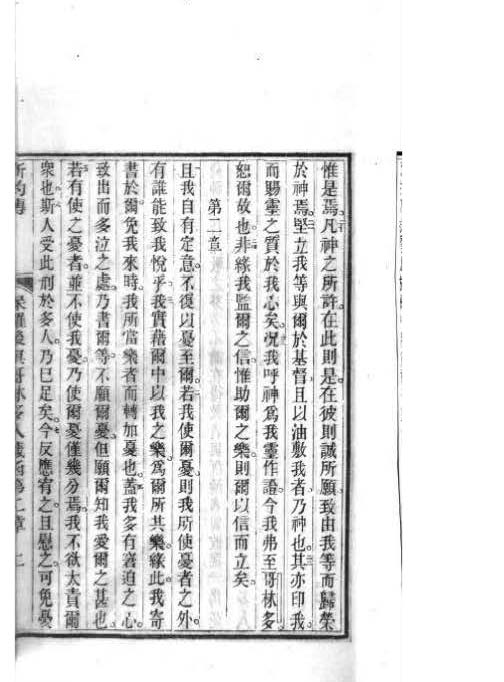 惟是焉。凡神之所許。在此則是。在彼則誠所願。致由我等而歸榮
於神焉。堅立我等與爾於基督且以油敷我者乃神也。其亦印我。
而賜靈之質於我心矣。況我呼神為我靈作證。今我弗至哥林多。
恕爾故也。非緣我監爾之信。惟助爾之樂。則爾以信而立矣。
第二章
且我自有定意。不復以憂至爾。若我使爾憂。則我所使憂者之外。
有誰能致我悅乎。我實藉爾中以我之樂。為爾所共樂。緣此我寄
書於爾。免我來時。我所當樂者而轉加憂也。蓋我多有窘迫之心。
致出而多泣之處。乃書爾等。不願爾憂。但願爾知我愛爾之甚也。
若有使之憂者。並不使我憂。乃使爾憂僅幾分焉。我不欲太責爾
衆也。斯人受此刑於多人。乃已足矣。今反應宥之。且慰之。可免憂
新約傳 哥林多人 第二章 二